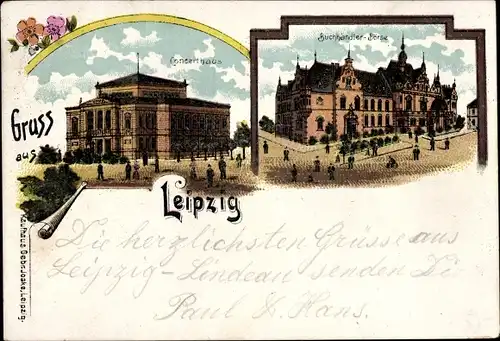 Concerthaus
Buchhändler-Börse
Gruss
aus
Leipzig
Kaufhaus Gebr. Joske, Leipzig.
Die herzlichsten Grüsse aus
Leipzig-Lindenau senden Dir
Paul & Hans.